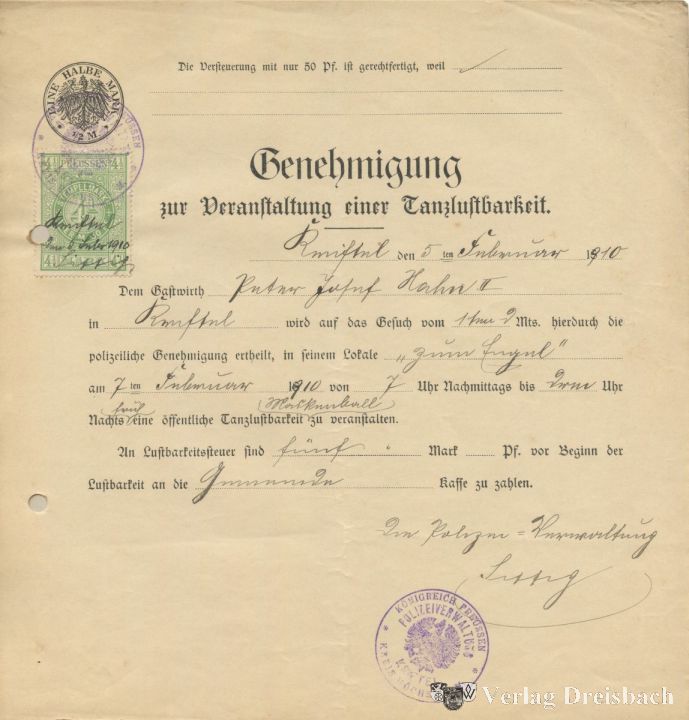 Die Versteuerung mit nur 50 Pf. ist gerechtfertigt, weil
EINE HALBE MARK
1/2 M
PREUSSEN
Kriftel
den 5 Febr 1910
Genehmigung
zur Veranstaltung einer Tanzlustbarkeit.
Kriftel den 5ten Februar 1910
Dem Gastwirth Peter Josef Hahn II
in Kriftel wird auf das Gesuch vom 1ten d Mts. hierdurch die
polizeiliche Genehmigung ertheilt, in seinem Lokale „zum Engel“
am 7ten Februar 1910 von 7 Uhr Nachmittags bis Drei Uhr
früh Maskenball
Nachts eine öffentliche Tanzlustbarkeit zu veranstalten.
An Lustbarkeitssteuer sind fünf Mark Pf. vor Beginn der
Lustbarkeit an die Gemeinde Kasse zu zahlen.
Die Polizei=Verwaltung
KÖNIGREICH PREUSSEN
POLIZEIVERWALTUNG
KRIFTEL
KREIS HÖCHST
Verlag Dreisbach